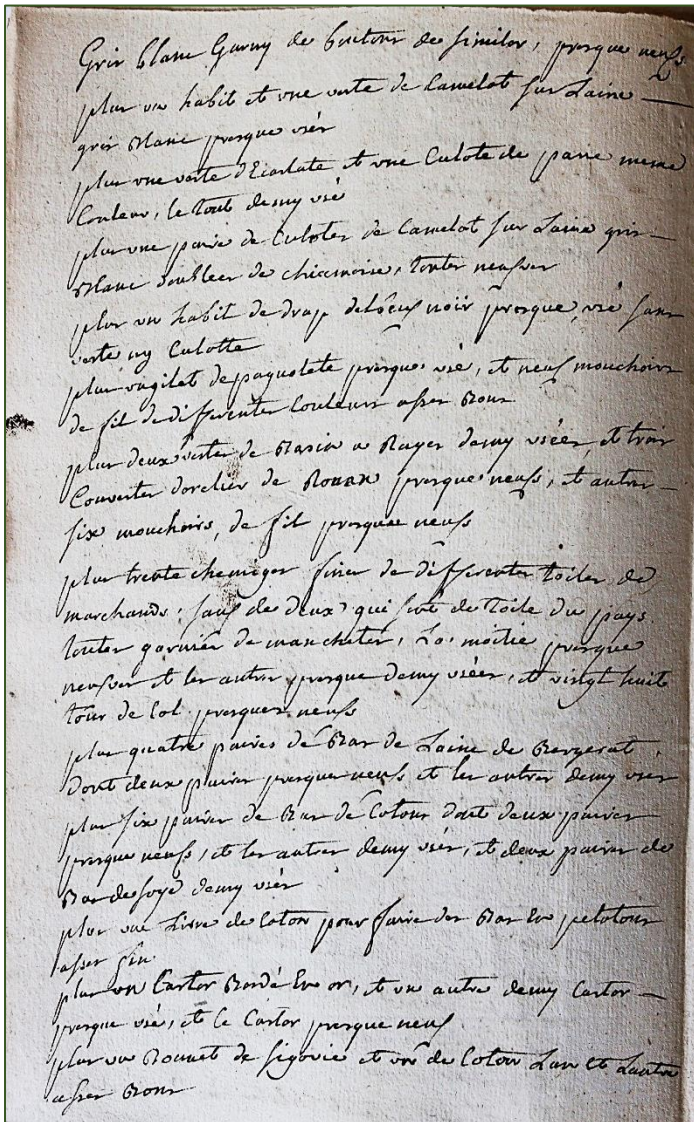 Gris blanc Garny de boutons de similor, presque neufs
plus un habit et une veste de Camelot sur Laine —
gris Blanc presque usés
plus une veste d'Ecarlate et une Culote de pane meme
Couleur, le tout demy usé
plus une paire de Culotes de Camelot sur Laine gris —
Blanc doublees de chiamoise, toutes neufves
plus un habit de drap noir presque usé sans
veste ny Culotte
plus un gilet de paquotete presque usé, et neuf mouchoirs
de fil de differentes Couleurs asses Bons
plus deux vestes de Basin a Rayes demy usées, et trois
Couvertes dorelier de Rouan presque neufs, et autres —
six mouchoirs, de fil presque neufs
plus trente chemiges fines de differentes toiles de
marchands, sauf de deux qui sont de Toile du pays
toutes garnies de manchetes, La moitie presque
neufves et les autres presque demy usées, et vingt huit
tour de Col presques neufs
plus quatre paires de Bas de Laine de Bergerat,
dont deux paires presque neufs et les autres demy usés
plus six paires de Bas de Cotons dont deux paires
presque neufs, et les autres demy usés, et deux paires de
Bas de soye demy usés
plus une Livre de Coton pour faire des Bas En pelotons
asses fin
plus un Castor Bordé En or, et un autre demy Castor —
presque usé, et le Castor presque neuf
plus un Bonnet de sigovie et un de Coton Lun et Lautre
asses Bons